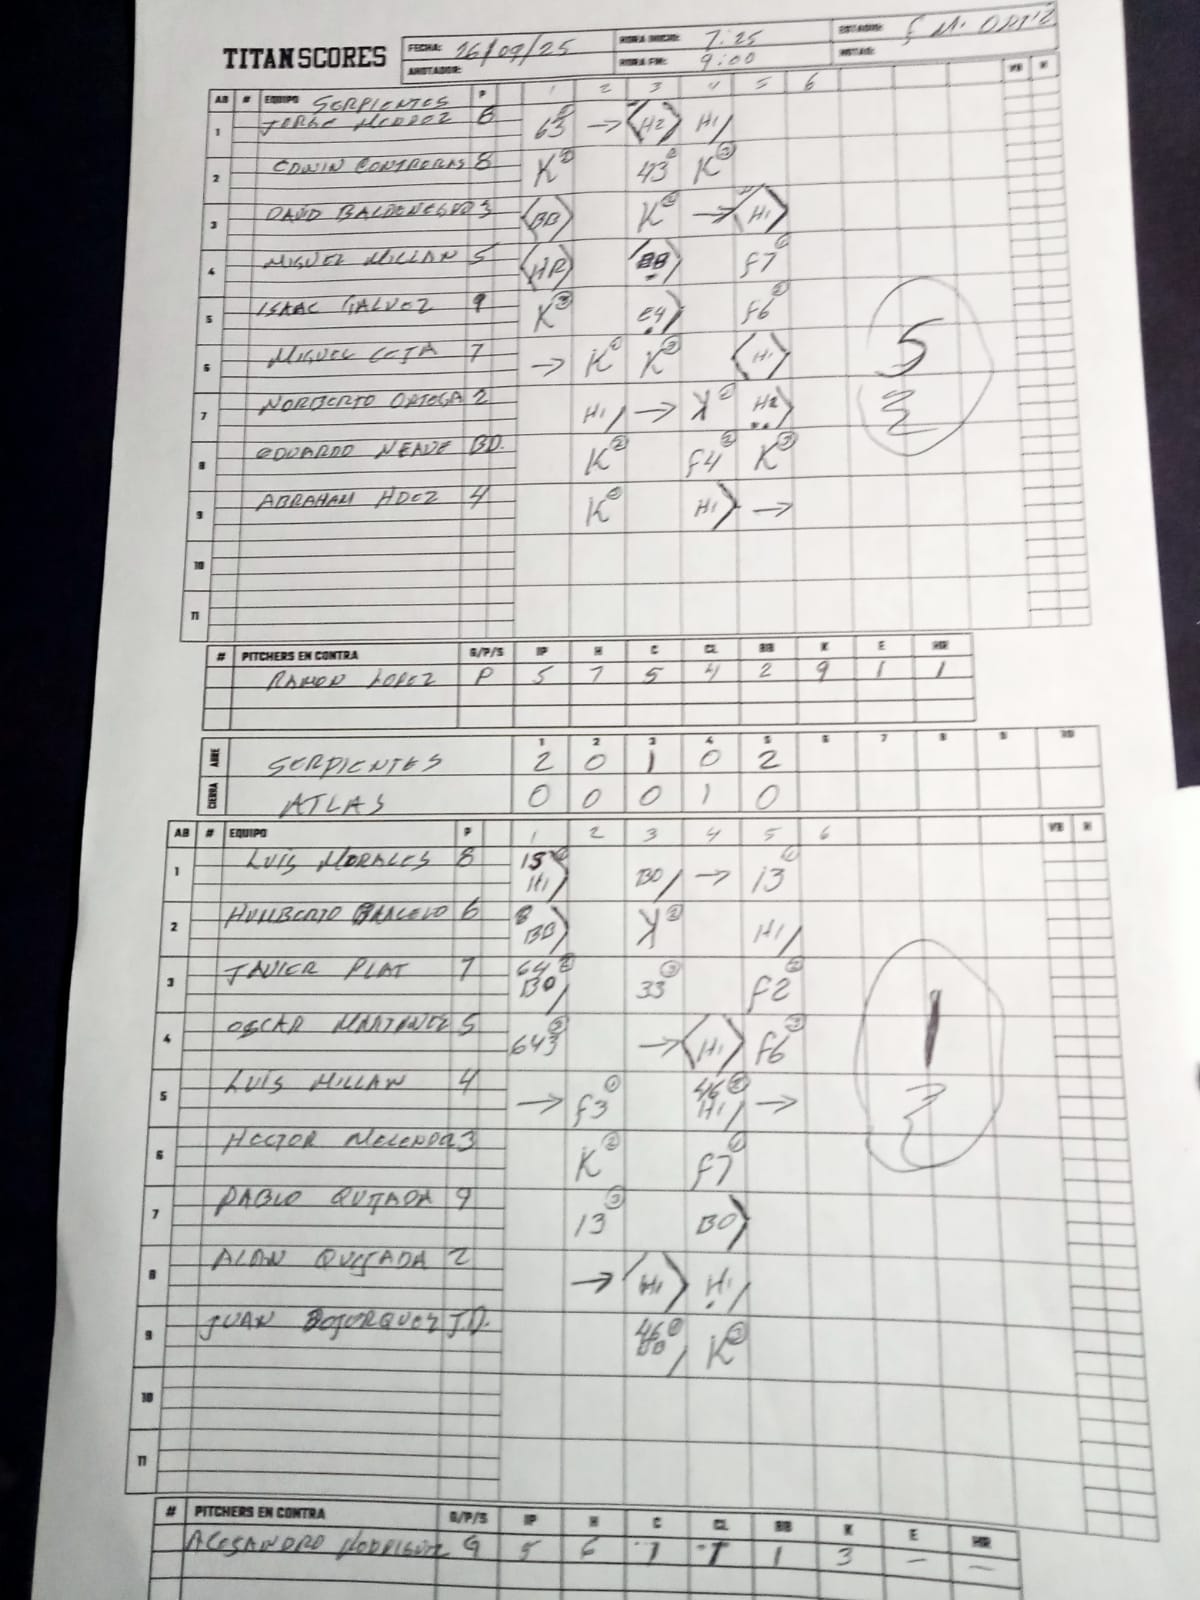 TITAN SCORES
FECHA: 26/09/25 HORA INICIO: 7:25 ESTADIO: F. M. ORTIZ
ANOTADOR: HORA FIN: 9:00 NOTAS:
AB # EQUIPO SERPIENTES P 1 2 3 4 5 6 VB H
1 JORGE 6 63 → H2 H1
2 EDWIN CONTRERAS 8 K 43 K
3 DAVID BALDENEGRO 3 BB K → H1
4 MIGUEL MILLAN 5 HR BB F7
5 ISAAC GALVEZ 9 K③ E4 F6
6 MIGUEL CETA 7 → K K H1
7 NORBERTO ORTEGA 2 H1 → K H2
8 EDUARDO NEAVE BD. K② F4② K③
9 ABRAHAM HDEZ 4 K H1 →
5
10
11
# PITCHERS EN CONTRA G/P/S IP H C CL BB K E HR
RAMON LOPEZ P 5 7 5 4 2 9 1 1
1 2 3 4 5 6 7 8 9 10
ABRE SERPIENTES 2 0 1 0 2
CIERRA ATLAS 0 0 0 1 0
AB # EQUIPO P 1 2 3 4 5 6 VB H
1 LUIS MORALES 8 H1 BO → 13
2 HUMBERTO 6 BB K② H1
3 JAVIER PLAT 7 64② BO 33③ F2②
4 OSCAR MARTINEZ 5 643③ → H1 F6③
5 LUIS MILLAN 4 → F3① 46② H1 →
6 HECTOR 3 K② F7①
7 PABLO QUIJADA 9 13③ BO
8 ALAN QUIJADA 2 → H1 H1
9 JUAN BOJORQUEZ J.D. 46① K③
1
10
11
# PITCHERS EN CONTRA G/P/S IP H C CL BB K E HR
ALEJANDRO RODRIGUEZ G 5 6 1 1 1 3 - -